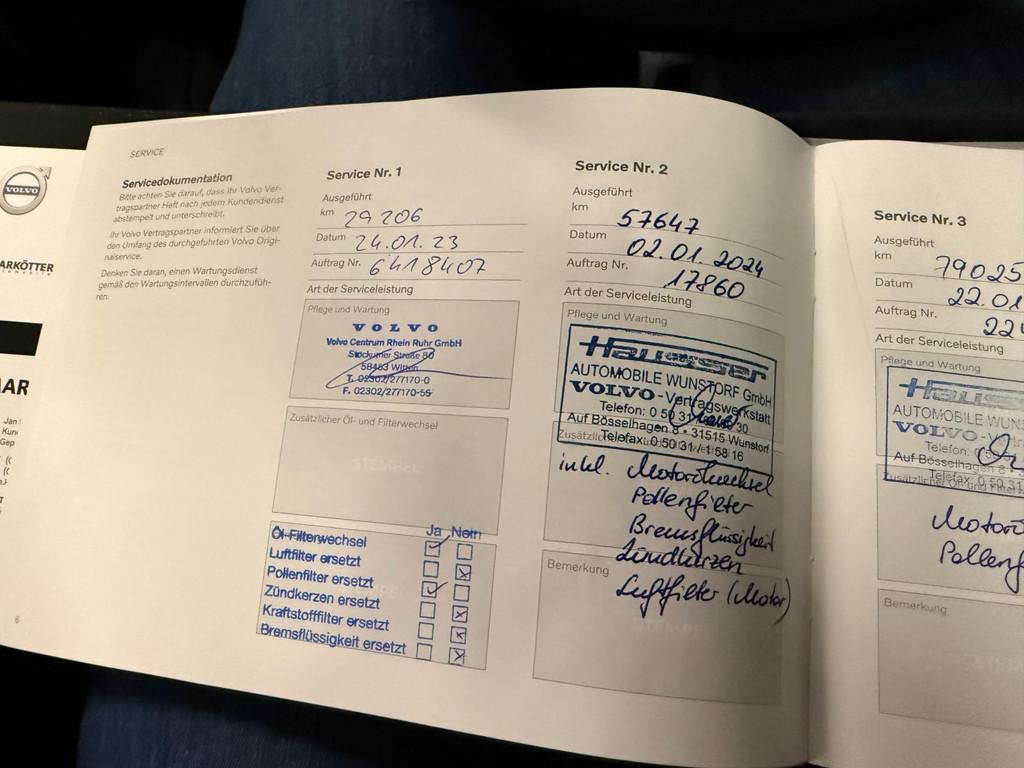 VOLVO
ARKÖTTER
AR
SERVICE
Servicedokumentation
Bitte achten Sie darauf, dass Ihr Volvo Ver-
tragspartner Heft nach jedem Kundendienst
abstempelt und unterschreibt.
Ihr Volvo Vertragspartner informiert Sie über
den Umfang des durchgeführten Volvo Origi-
nalservice.
Denken Sie daran, einen Wartungsdienst
gemäß den Wartungsintervallen durchzufüh-
ren.
6
Service Nr. 1
Ausgeführt
km 29206
Datum 24.01.23
Auftrag Nr. 6418407
Art der Serviceleistung
Pflege und Wartung
VOLVO
Volvo Centrum Rhein Ruhr GmbH
Stockumer Straße 80
58453 Witten
T. 02302/277170-0
F. 02302/277170-55
Zusätzlicher Öl- und Filterwechsel
STEMPEL
Ja Nein
Öl-Filterwechsel
Luftfilter ersetzt
Pollenfilter ersetzt
Zündkerzen ersetzt
Kraftstofffilter ersetzt
Bremsflüssigkeit ersetzt
Service Nr. 2
Ausgeführt
km 57647
Datum 02.01.2024
Auftrag Nr. 17860
Art der Serviceleistung
Pflege und Wartung
Hausser
AUTOMOBILE WUNSTORF GmbH
VOLVO - Vertragswerkstatt
Telefon: 0 50 31 30
Auf Bösselhagen 8 • 31515 Wunstorf
Telefax: 0 50 31 / 1 58 16
inkl. Motorölwechsel
Pollenfilter
Bremsflüssigkeit
Zündkerzen
Luftfilter (Motor)
Bemerkung
STEMPEL
Service Nr. 3
Ausgeführt
km 79025
Datum 22.01
Auftrag Nr. 22
Art der Serviceleistung
Pflege und Wartung
Hauss
AUTOMOBILE WUNS
VOLVO
Telefon: 0
Auf Bösselhagen 8
Telefax: 0 50 31
Motor
Pollenf
Bemerkung
STEM